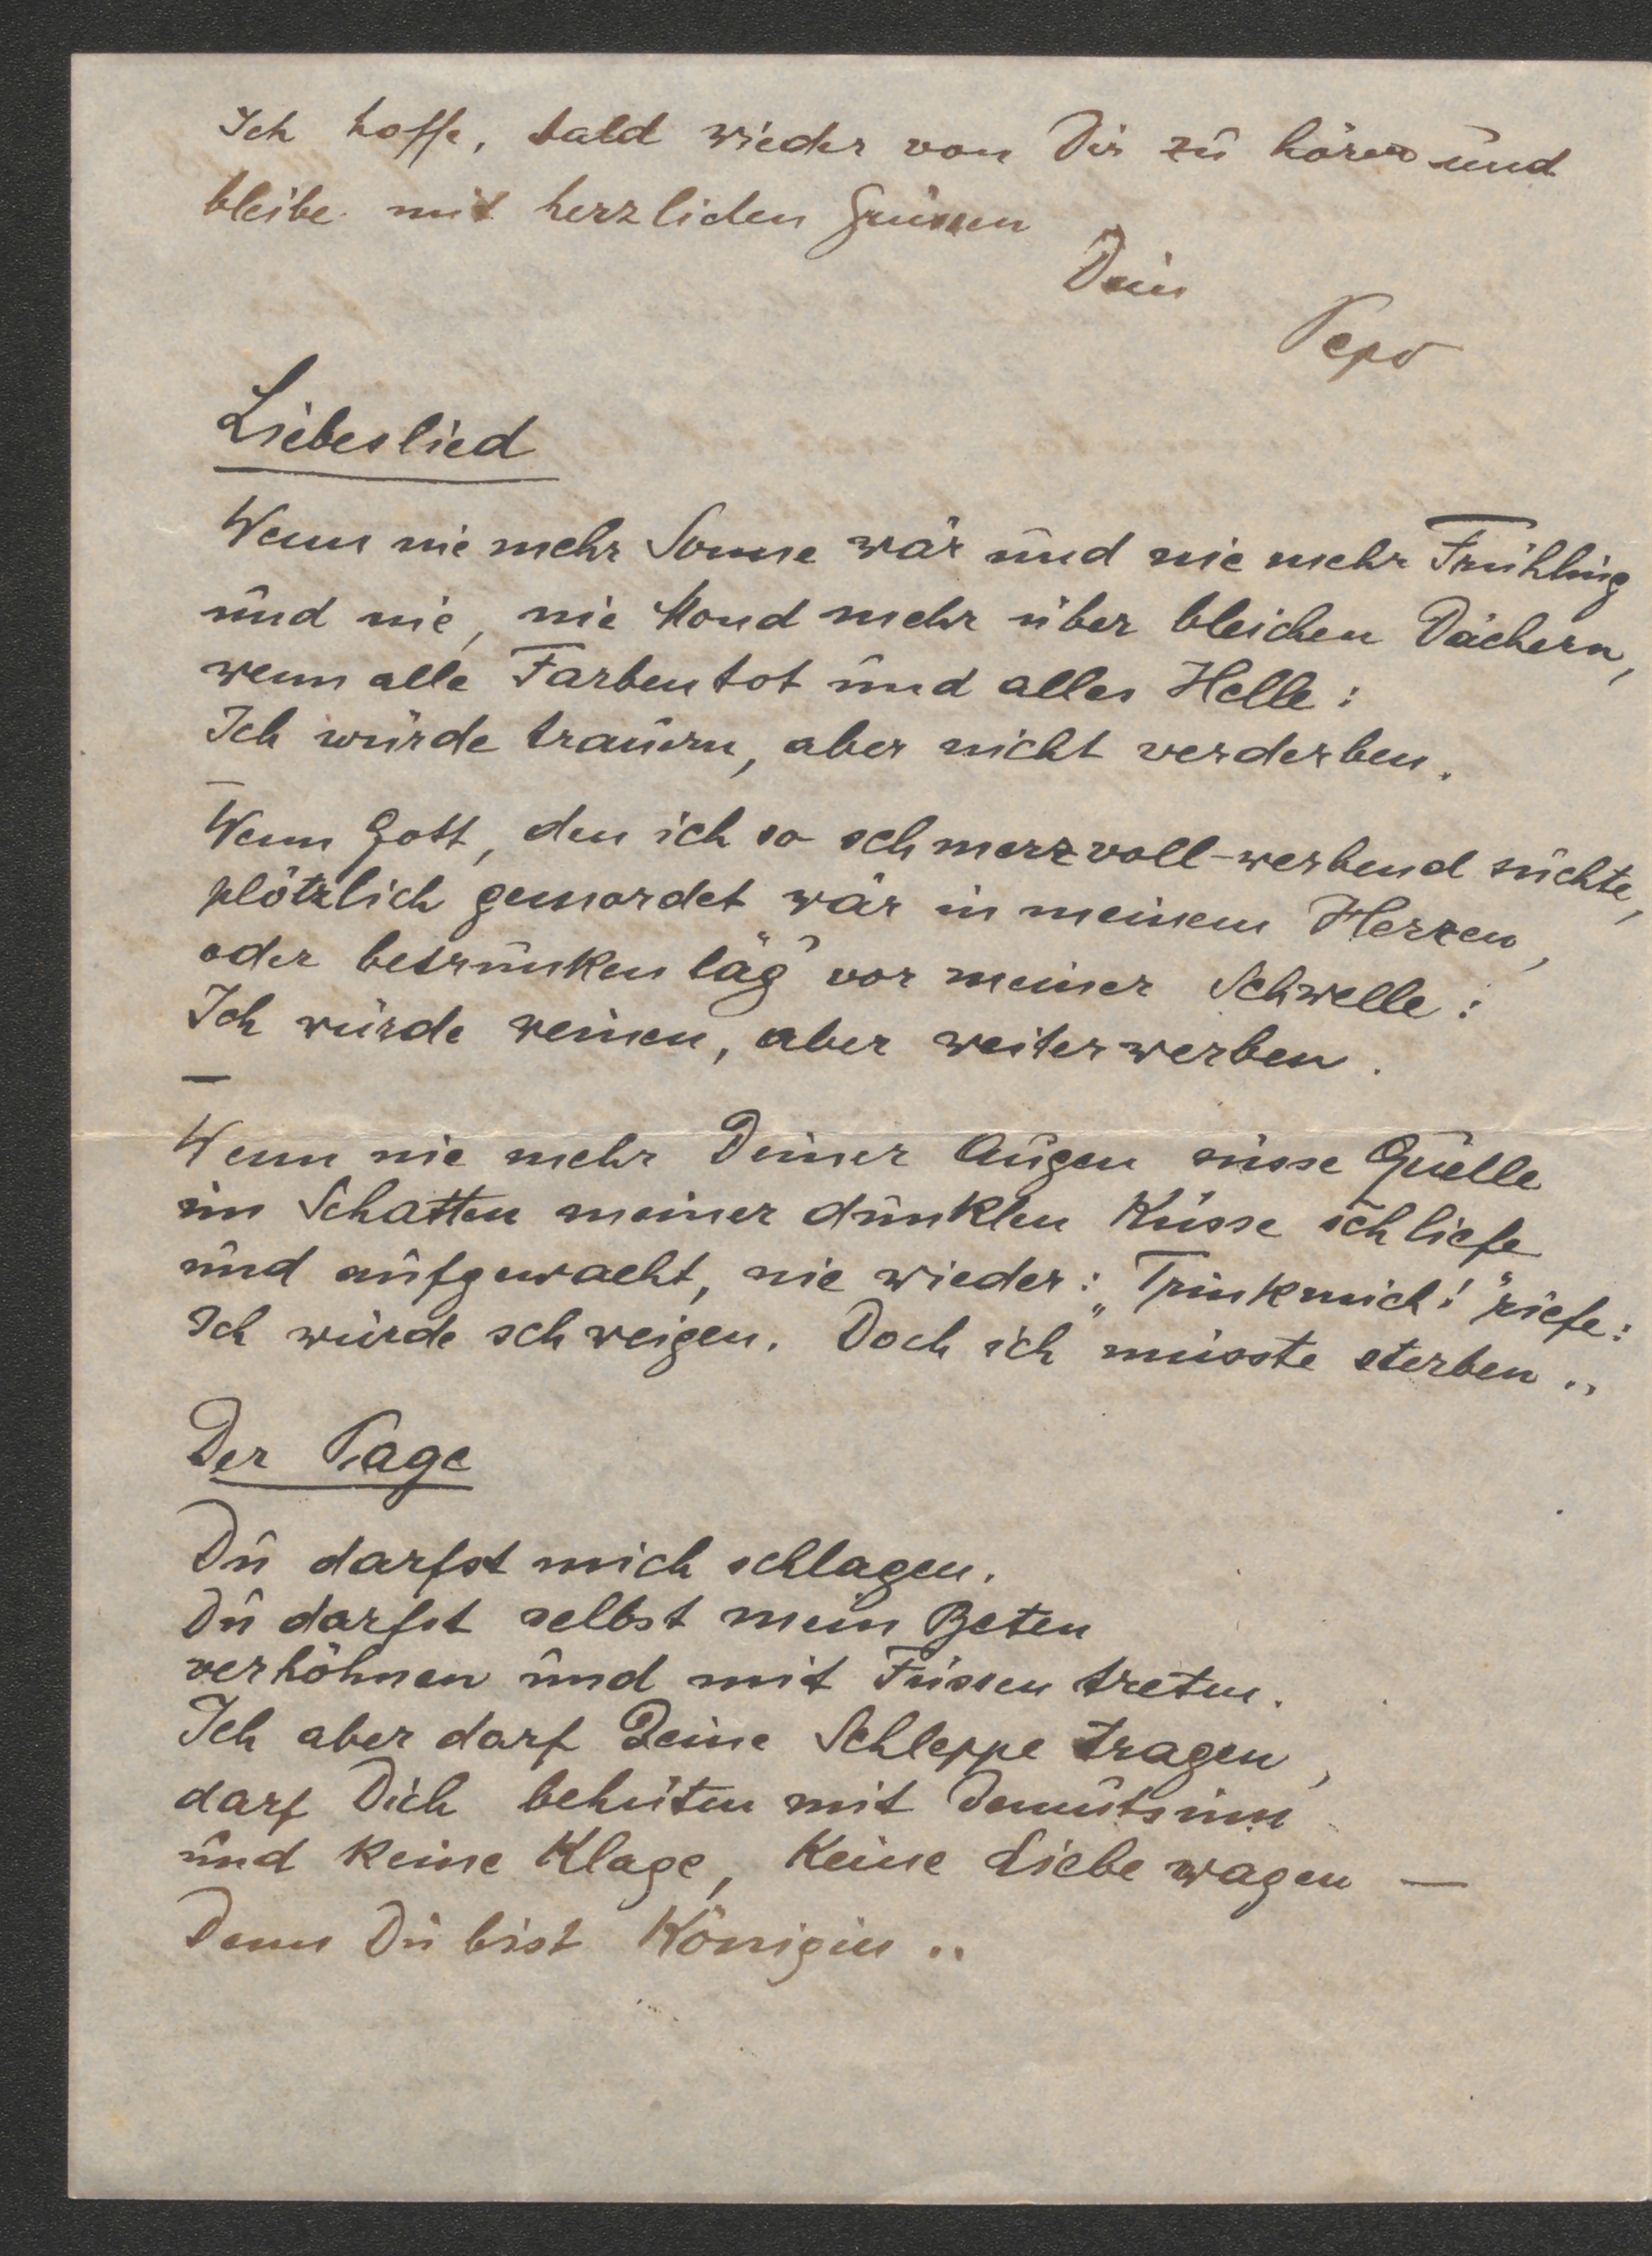 Ich hoffe, bald wieder von Dir zu hören und
bleibe mit herzlichen Grüssen
Dein
Pepo
Liebeslied
Wenn nie mehr Sonne wär und nie mehr Frühling
und nie, nie Mond mehr über bleichen Dächern,
wenn alle Farben tot und alles Helle:
Ich würde trauern, aber nicht verderben.
—
Wenn Gott, den ich so schmerzvoll-werbend suchte,
plötzlich gemordet wär in meinem Herzen,
oder betrunken läg' vor meiner Schwelle:
Ich würde weinen, aber weiterwerben.
—
Wenn nie mehr Deiner Augen süsse Quelle
im Schatten meiner dunklen Küsse schliefe
und aufgewacht, nie wieder: „Trink mich!" riefe:
Ich würde schweigen. Doch ich müsste sterben ..
Der Page
Du darfst mich schlagen.
Du darfst selbst mein Beten
verhöhnen und mit Füssen treten.
Ich aber darf Deine Schleppe tragen,
darf Dich behüten mit Demutsinn
und keine Klage, keine Liebe wagen —
Denn Du bist Königin ..